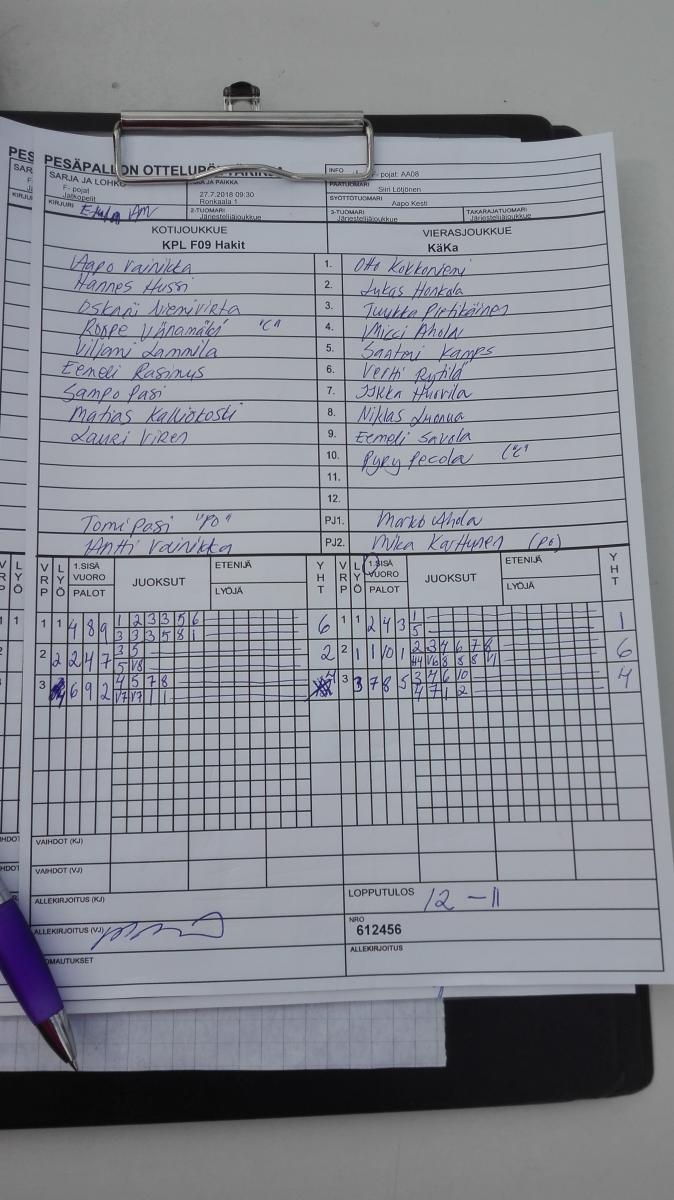 PESÄPALLON OTTELUPÖYTÄKIRJA
INFO F- pojat: AA08
SARJA JA LOHKO
F- pojat
Jalkopelit
AIKA JA PAIKKA
27.7.2018 09:30
Ronkaala 1
PÄÄTUOMARI Siiri Lötjönen
SYÖTTÖTUOMARI Aapo Kesti
KIRJURI
2-TUOMARI
Järjestelijäjoukkue
3-TUOMARI
Järjestelijäjoukkue
TAKARAJATUOMARI
Järjestelijäjoukkue
KOTIJOUKKUE VIERASJOUKKUE
KPL F09 Hakit KäKa
Aapo Vainikka 1. Otto Kokkoniemi
Hannes Hussi 2. Lukas Honkala
Oskari Nienivirta 3. Tuukka Pietikäinen
Roope Vänämäki "C" 4. Micci Ahola
Viljami Lammila 5. Santeri Kamps
Eemeli Rasinus 6. Vertti Rytilä
Sampo Pasi 7. Iikka Hurvila
Matias Kalliokoski 8. Niklas
Lauri Viren 9. Eemeli Savola
10. Pyry Pecola "C"
11.
12.
Tomi Pasi "PO" PJ1. Marko Ahola
Antti Vainikka PJ2. Mika Karttunen (PO)
VRP LYÖ 1.SISÄ VUORO PALOT JUOKSUT ETENIJÄ LYÖJÄ YHT VRP LYÖ 1.SISÄ VUORO PALOT JUOKSUT ETENIJÄ LYÖJÄ YHT
1 1 4 8 9 1 2 3 3 5 6 6 1 1 2 4 3 1 1
3 3 3 5 8 1 5
2 2 2 4 7 3 5 2 2 1 1 10 1 2 3 4 6 7 8 6
5 V8 V6 8 8 8 V1
3 6 9 2 4 5 7 8 4 3 3 7 8 5 3 4 6 10 4
V7 V7 1 1 4 7 1 2
VAIHDOT (KJ)
VAIHDOT (VJ)
ALLEKIRJOITUS (KJ) LOPPUTULOS 12 - 11
ALLEKIRJOITUS (VJ) NRO
612456
HUOMAUTUKSET ALLEKIRJOITUS